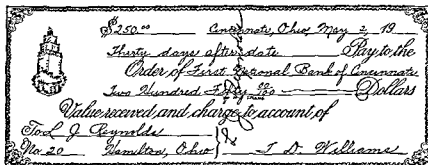 $250.00 Cincinnati, Ohio, May 2, 19
Thirty days after date Pay to the
Order of First National Bank of Cincinnati
Two Hundred Fifty 00/100 Dollars
Value received and charge to account of
To L J Reynolds
No. 20 Hamilton, Ohio } J. D. Williams